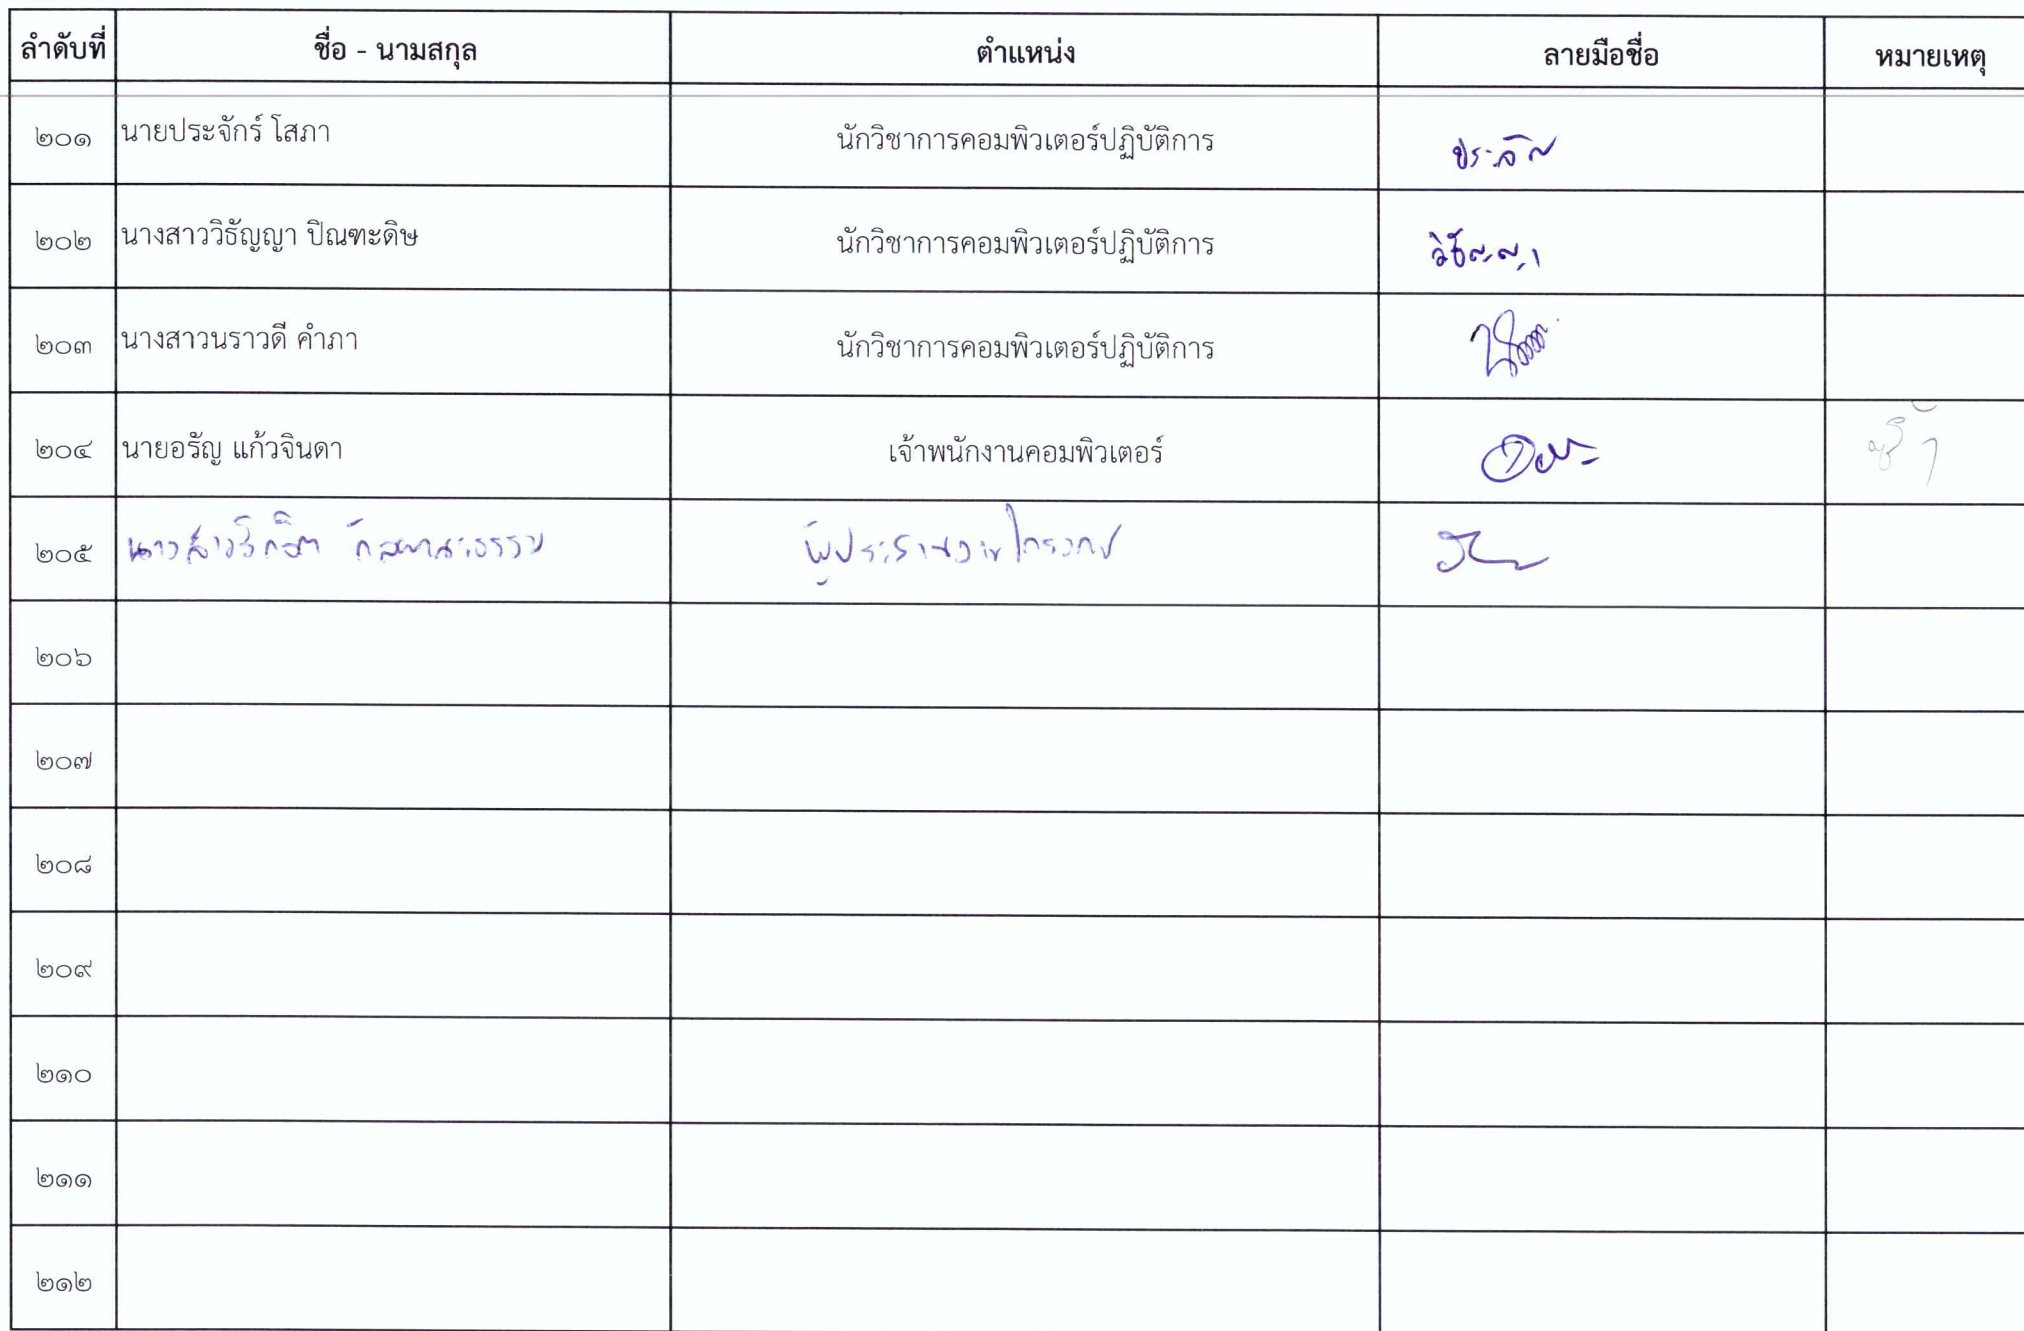 ลำดับที่ ชื่อ - นามสกุล ตำแหน่ง ลายมือชื่อ หมายเหตุ
๒๐๑ นายประจักร์ โสภา นักวิชาการคอมพิวเตอร์ปฏิบัติการ
๒๐๒ นางสาววิธัญญา ปิณฑะดิษ นักวิชาการคอมพิวเตอร์ปฏิบัติการ วิธัญญา
๒๐๓ นางสาวนราวดี คำภา นักวิชาการคอมพิวเตอร์ปฏิบัติการ
๒๐๔ นายอรัญ แก้วจินดา เจ้าพนักงานคอมพิวเตอร์ ซ้ำ
๒๐๕ นางสาว ผู้ประสานงานโครงการ
๒๐๖
๒๐๗
๒๐๘
๒๐๙
๒๑๐
๒๑๑
๒๑๒